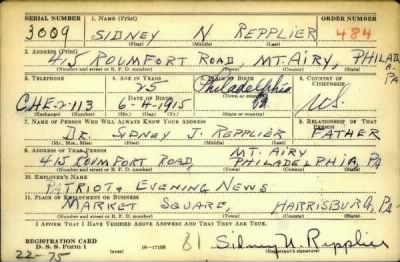 SERIAL NUMBER 1. NAME (Print) ORDER NUMBER
3009 SIDNEY N REPPLIER 484
(First) (Middle) (Last)
2. ADDRESS (Print)
415 ROUMFORT ROAD, MT. AIRY, PHILAD A. PA
(Number and street or R. F. D. number) (Town) (County) (State)
3. TELEPHONE 4. AGE IN YEARS 5. PLACE OF BIRTH 6. COUNTRY OF CITIZENSHIP
25 Philadelphia
DATE OF BIRTH (Town or county)
CHE-2-113 6-4-1915 PA U.S.
(Exchange) (Number) (Mo.) (Day) (Yr.) (State or country)
7. NAME OF PERSON WHO WILL ALWAYS KNOW YOUR ADDRESS 8. RELATIONSHIP OF THAT PERSON
DR. SIDNEY J. REPPLIER FATHER
(Mr., Mrs., Miss) (First) (Middle) (Last)
9. ADDRESS OF THAT PERSON
MT. AIRY
415 ROUMFORT ROAD, PHILADELPHIA, PA
(Number and street or R. F. D. number) (Town) (County) (State)
10. EMPLOYER'S NAME
PATRIOT & EVENING NEWS
11. PLACE OF EMPLOYMENT OR BUSINESS
MARKET SQUARE, HARRISBURG, PA-
(Number and street or R. F. D. number) (Town) (County) (State)
I AFFIRM THAT I HAVE VERIFIED ABOVE ANSWERS AND THAT THEY ARE TRUE.
REGISTRATION CARD
D. S. S. Form 1 16-17105 81 Sidney N. Repplier
22-75 (Registrant's signature)